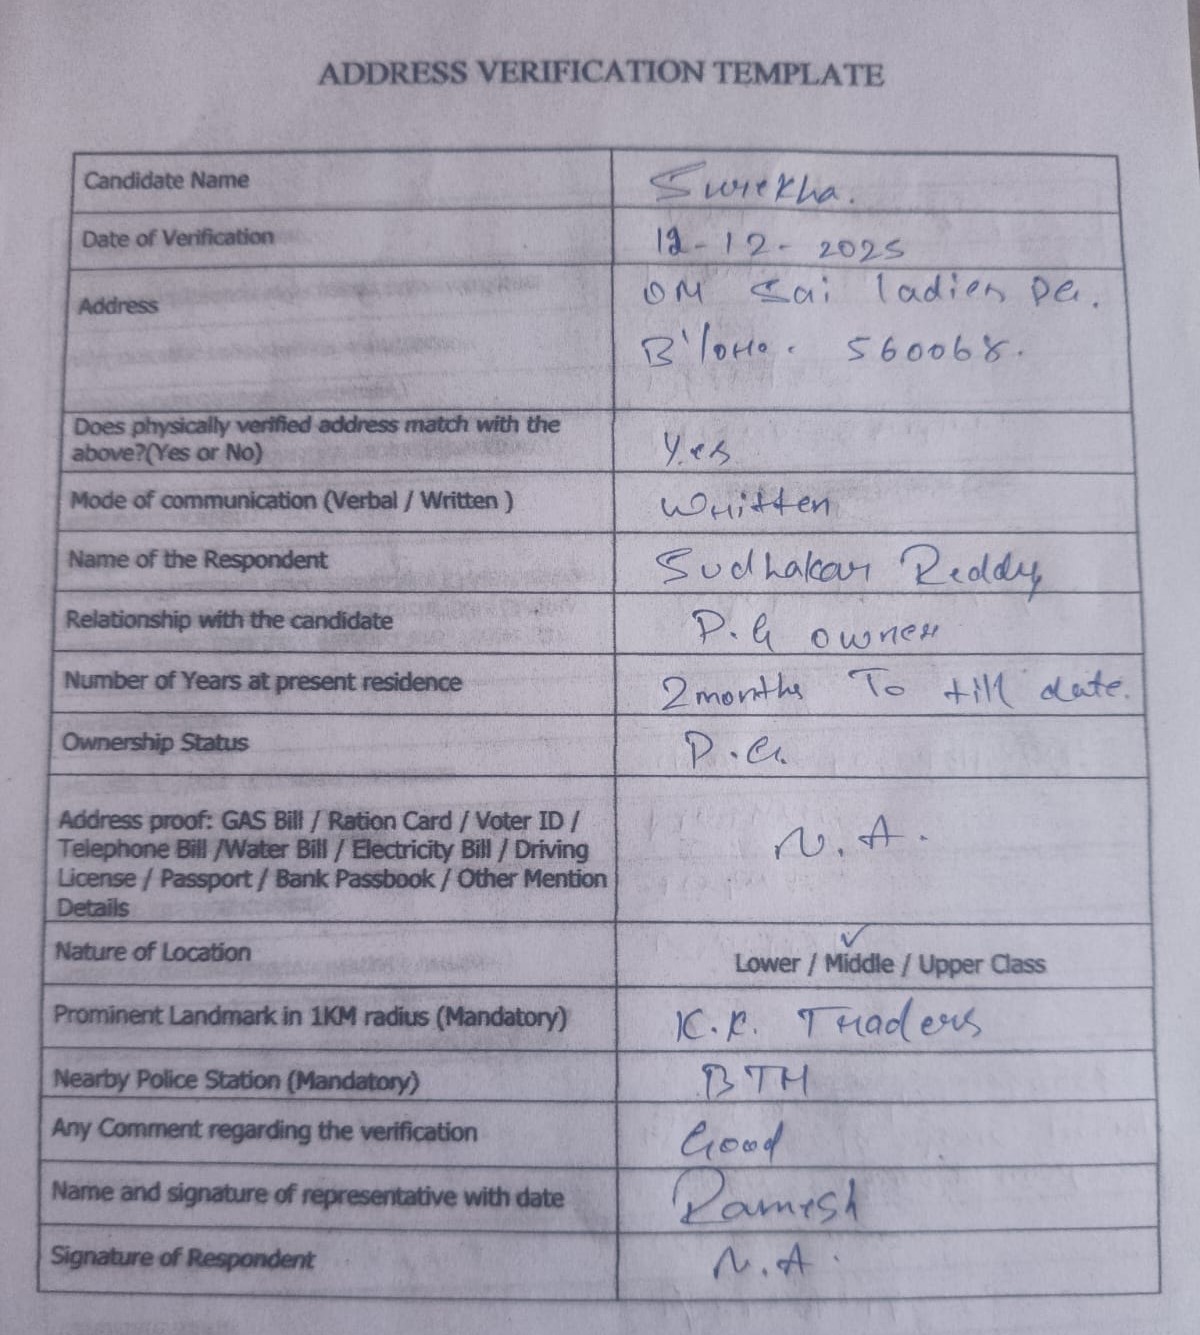 ADDRESS VERIFICATION TEMPLATE
Candidate Name
Surekha.
Date of Verification
12-12-2025
Address
OM Sai ladies PG.
B'lore. 560068.
Does physically verified address match with the
above?(Yes or No)
Yes
Mode of communication (Verbal / Written )
Written
Name of the Respondent
Sudhakar Reddy
Relationship with the candidate
P.G owner
Number of Years at present residence
2 months To till date.
Ownership Status
P.G.
Address proof: GAS Bill / Ration Card / Voter ID /
Telephone Bill /Water Bill / Electricity Bill / Driving
License / Passport / Bank Passbook / Other Mention
Details
N.A.
Nature of Location
Lower / Middle / Upper Class
Prominent Landmark in 1KM radius (Mandatory)
K.K. Traders
Nearby Police Station (Mandatory)
BTM
Any Comment regarding the verification
Good
Name and signature of representative with date
Ramesh
Signature of Respondent
N.A.